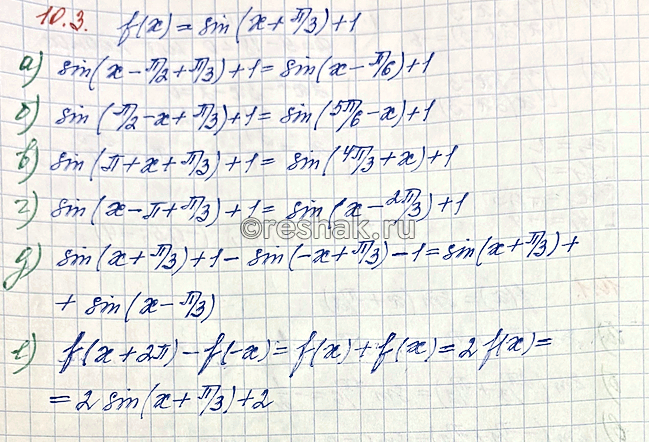 10.3. f(x) = sin(x + π/3) + 1
а) sin(x - π/2 + π/3) + 1 = sin(x - π/6) + 1
б) sin(π/2 - x + π/3) + 1 = sin(5π/6 - x) + 1
в) sin(π + x + π/3) + 1 = sin(4π/3 + x) + 1
г) sin(x - π + π/3) + 1 = sin(x - 2π/3) + 1
©reshak.ru
д) sin(x + π/3) + 1 - sin(-x + π/3) - 1 = sin(x + π/3) +
+ sin(x - π/3)
е) f(x + 2π) - f(-x) = f(x) + f(x) = 2 f(x) =
= 2 sin(x + π/3) + 2